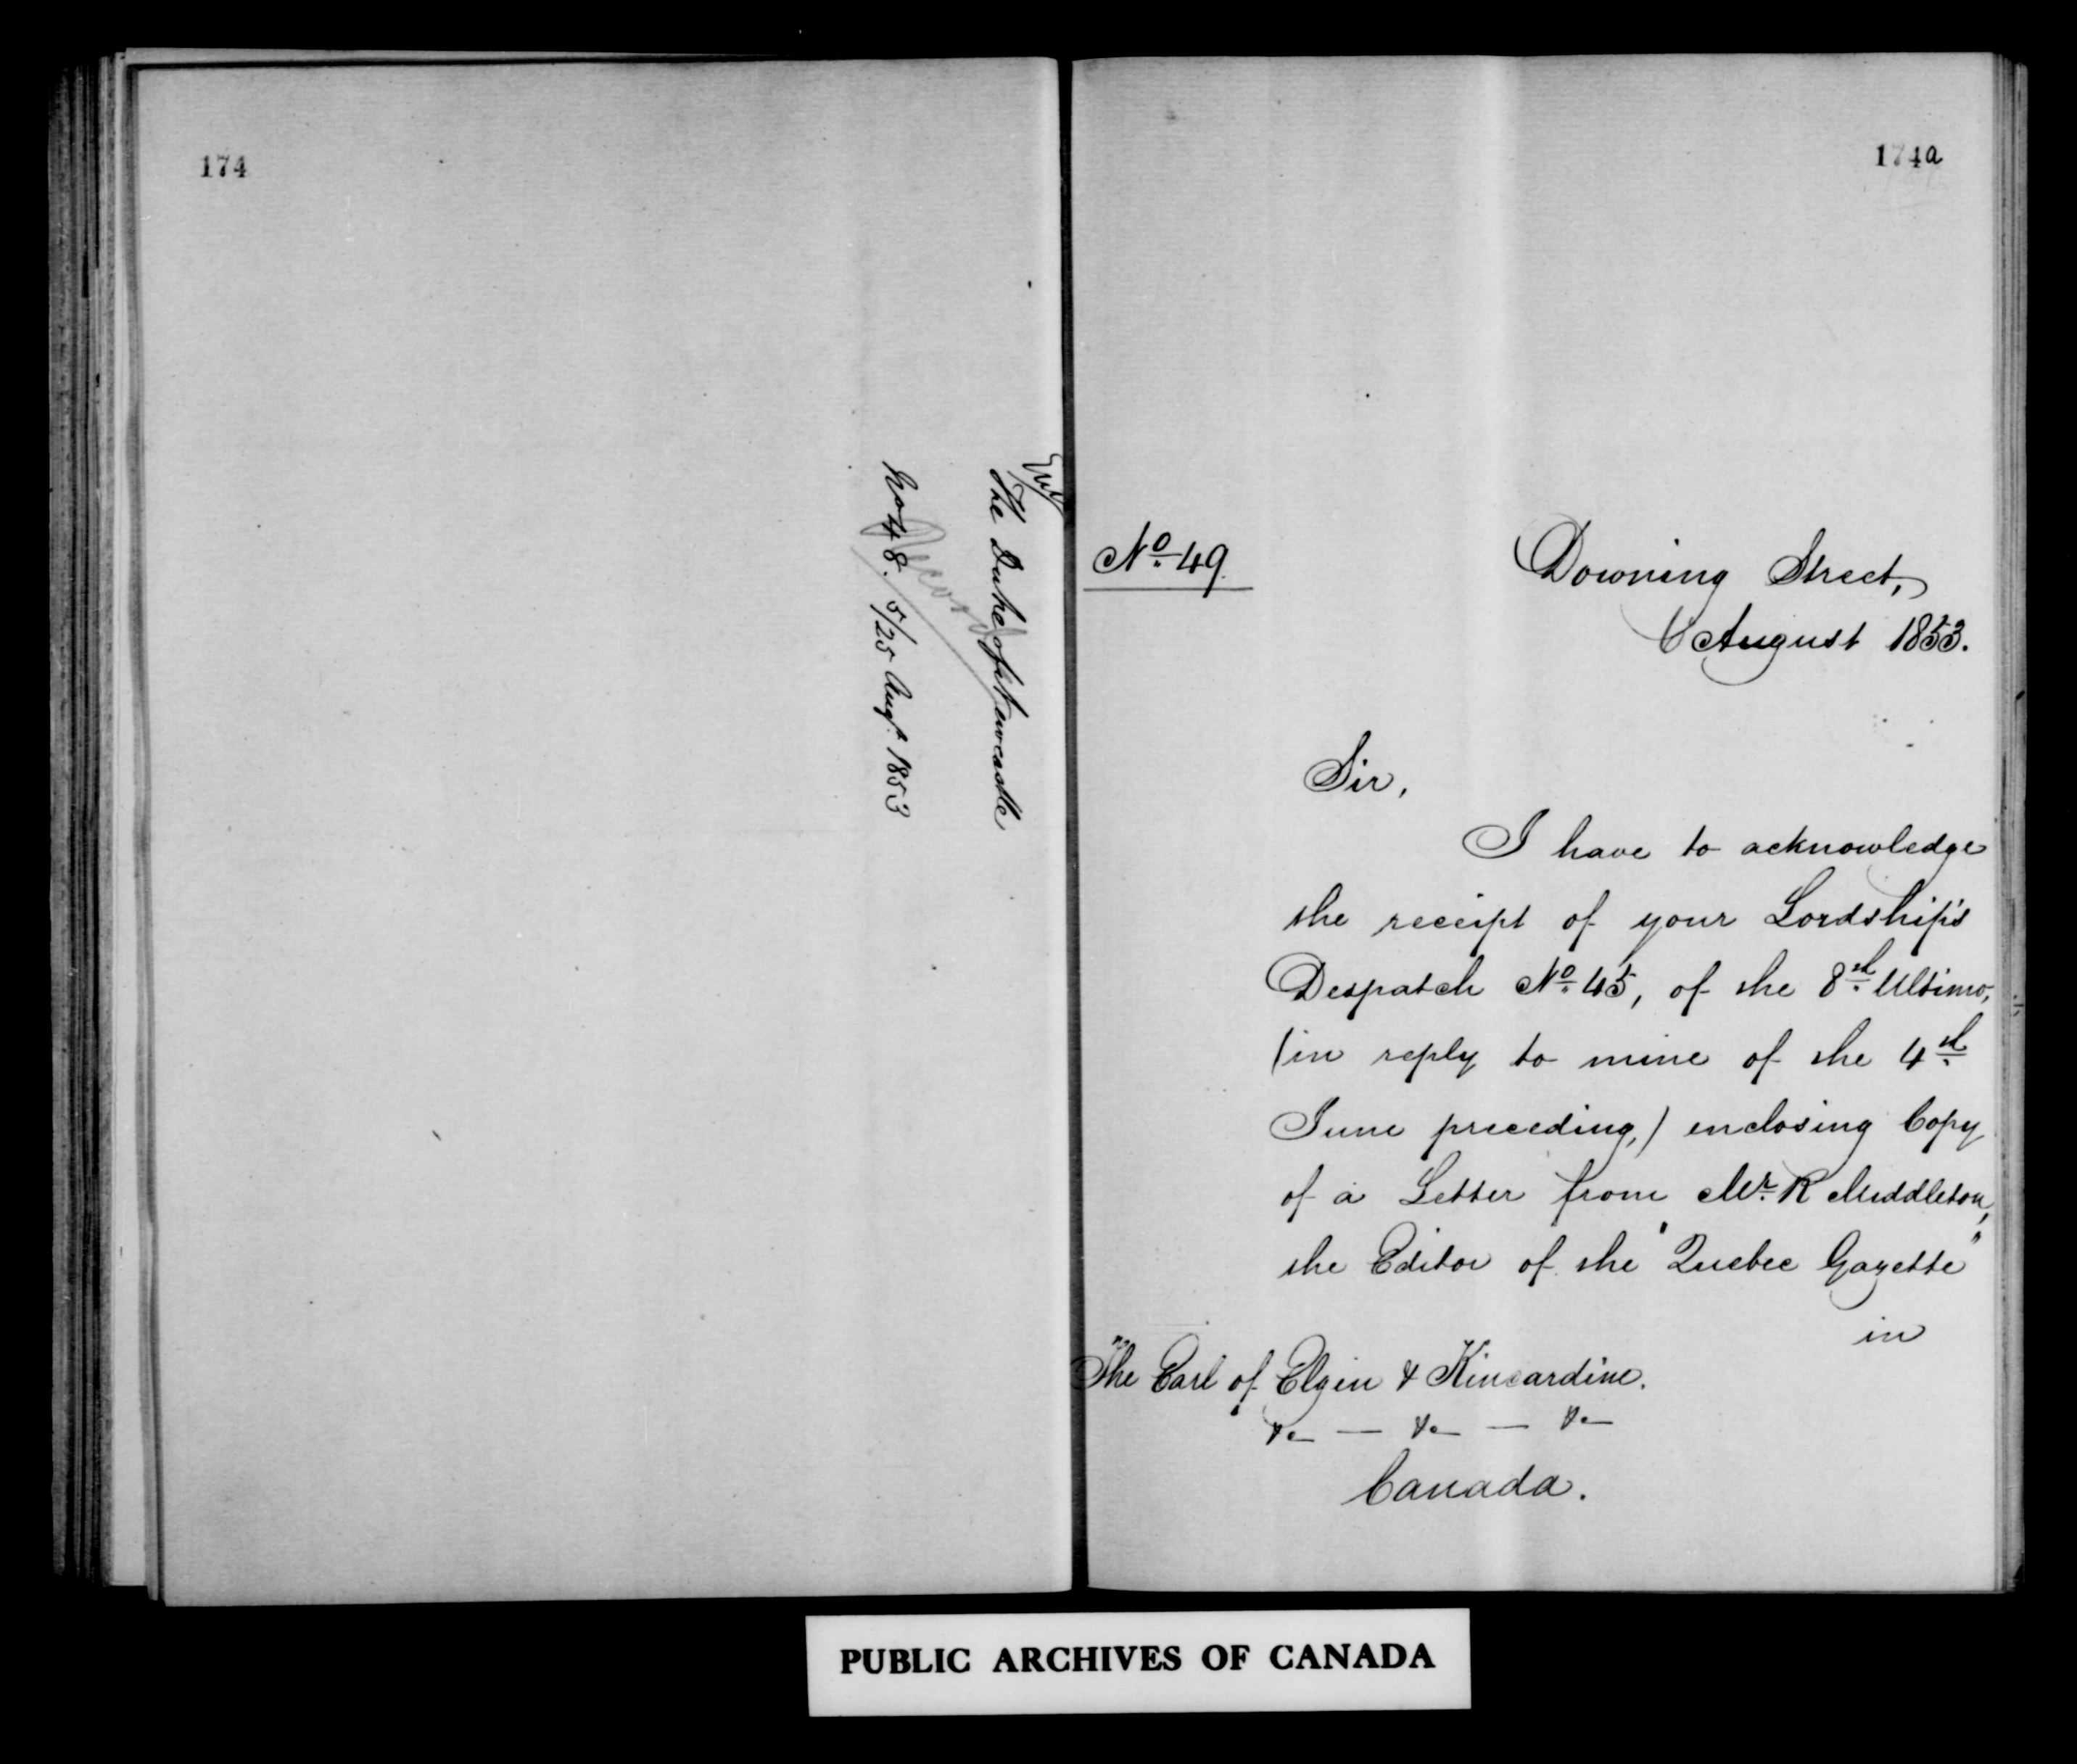 174
The Duke of Newcastle
No 48. 5/25 Augt. 1853
174a
No. 49.
Downing Street,
6 August 1853.
Sir,
I have to acknowledge
the receipt of your Lordship's
Despatch No. 45, of the 8th Ultimo,
(in reply to mine of the 4th
June preceding,) enclosing Copy
of a Letter from Mr. R Middleton,
the Editor of the "Quebec Gazette"
in
The Earl of Elgin & Kincardine.
&c — &c — &c
Canada.
PUBLIC ARCHIVES OF CANADA